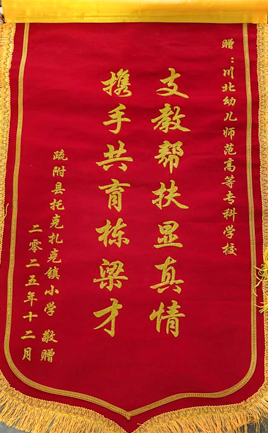 赠：川北幼儿师范高等专科学校
支教帮扶显真情
携手共育栋梁才
疏附县托克扎克镇小学 敬赠
二零二五年十二月